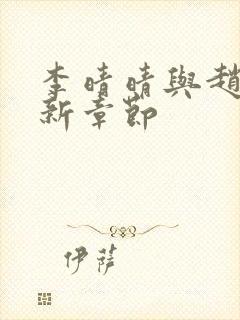 李晴晴與趙
新章節
伊薩